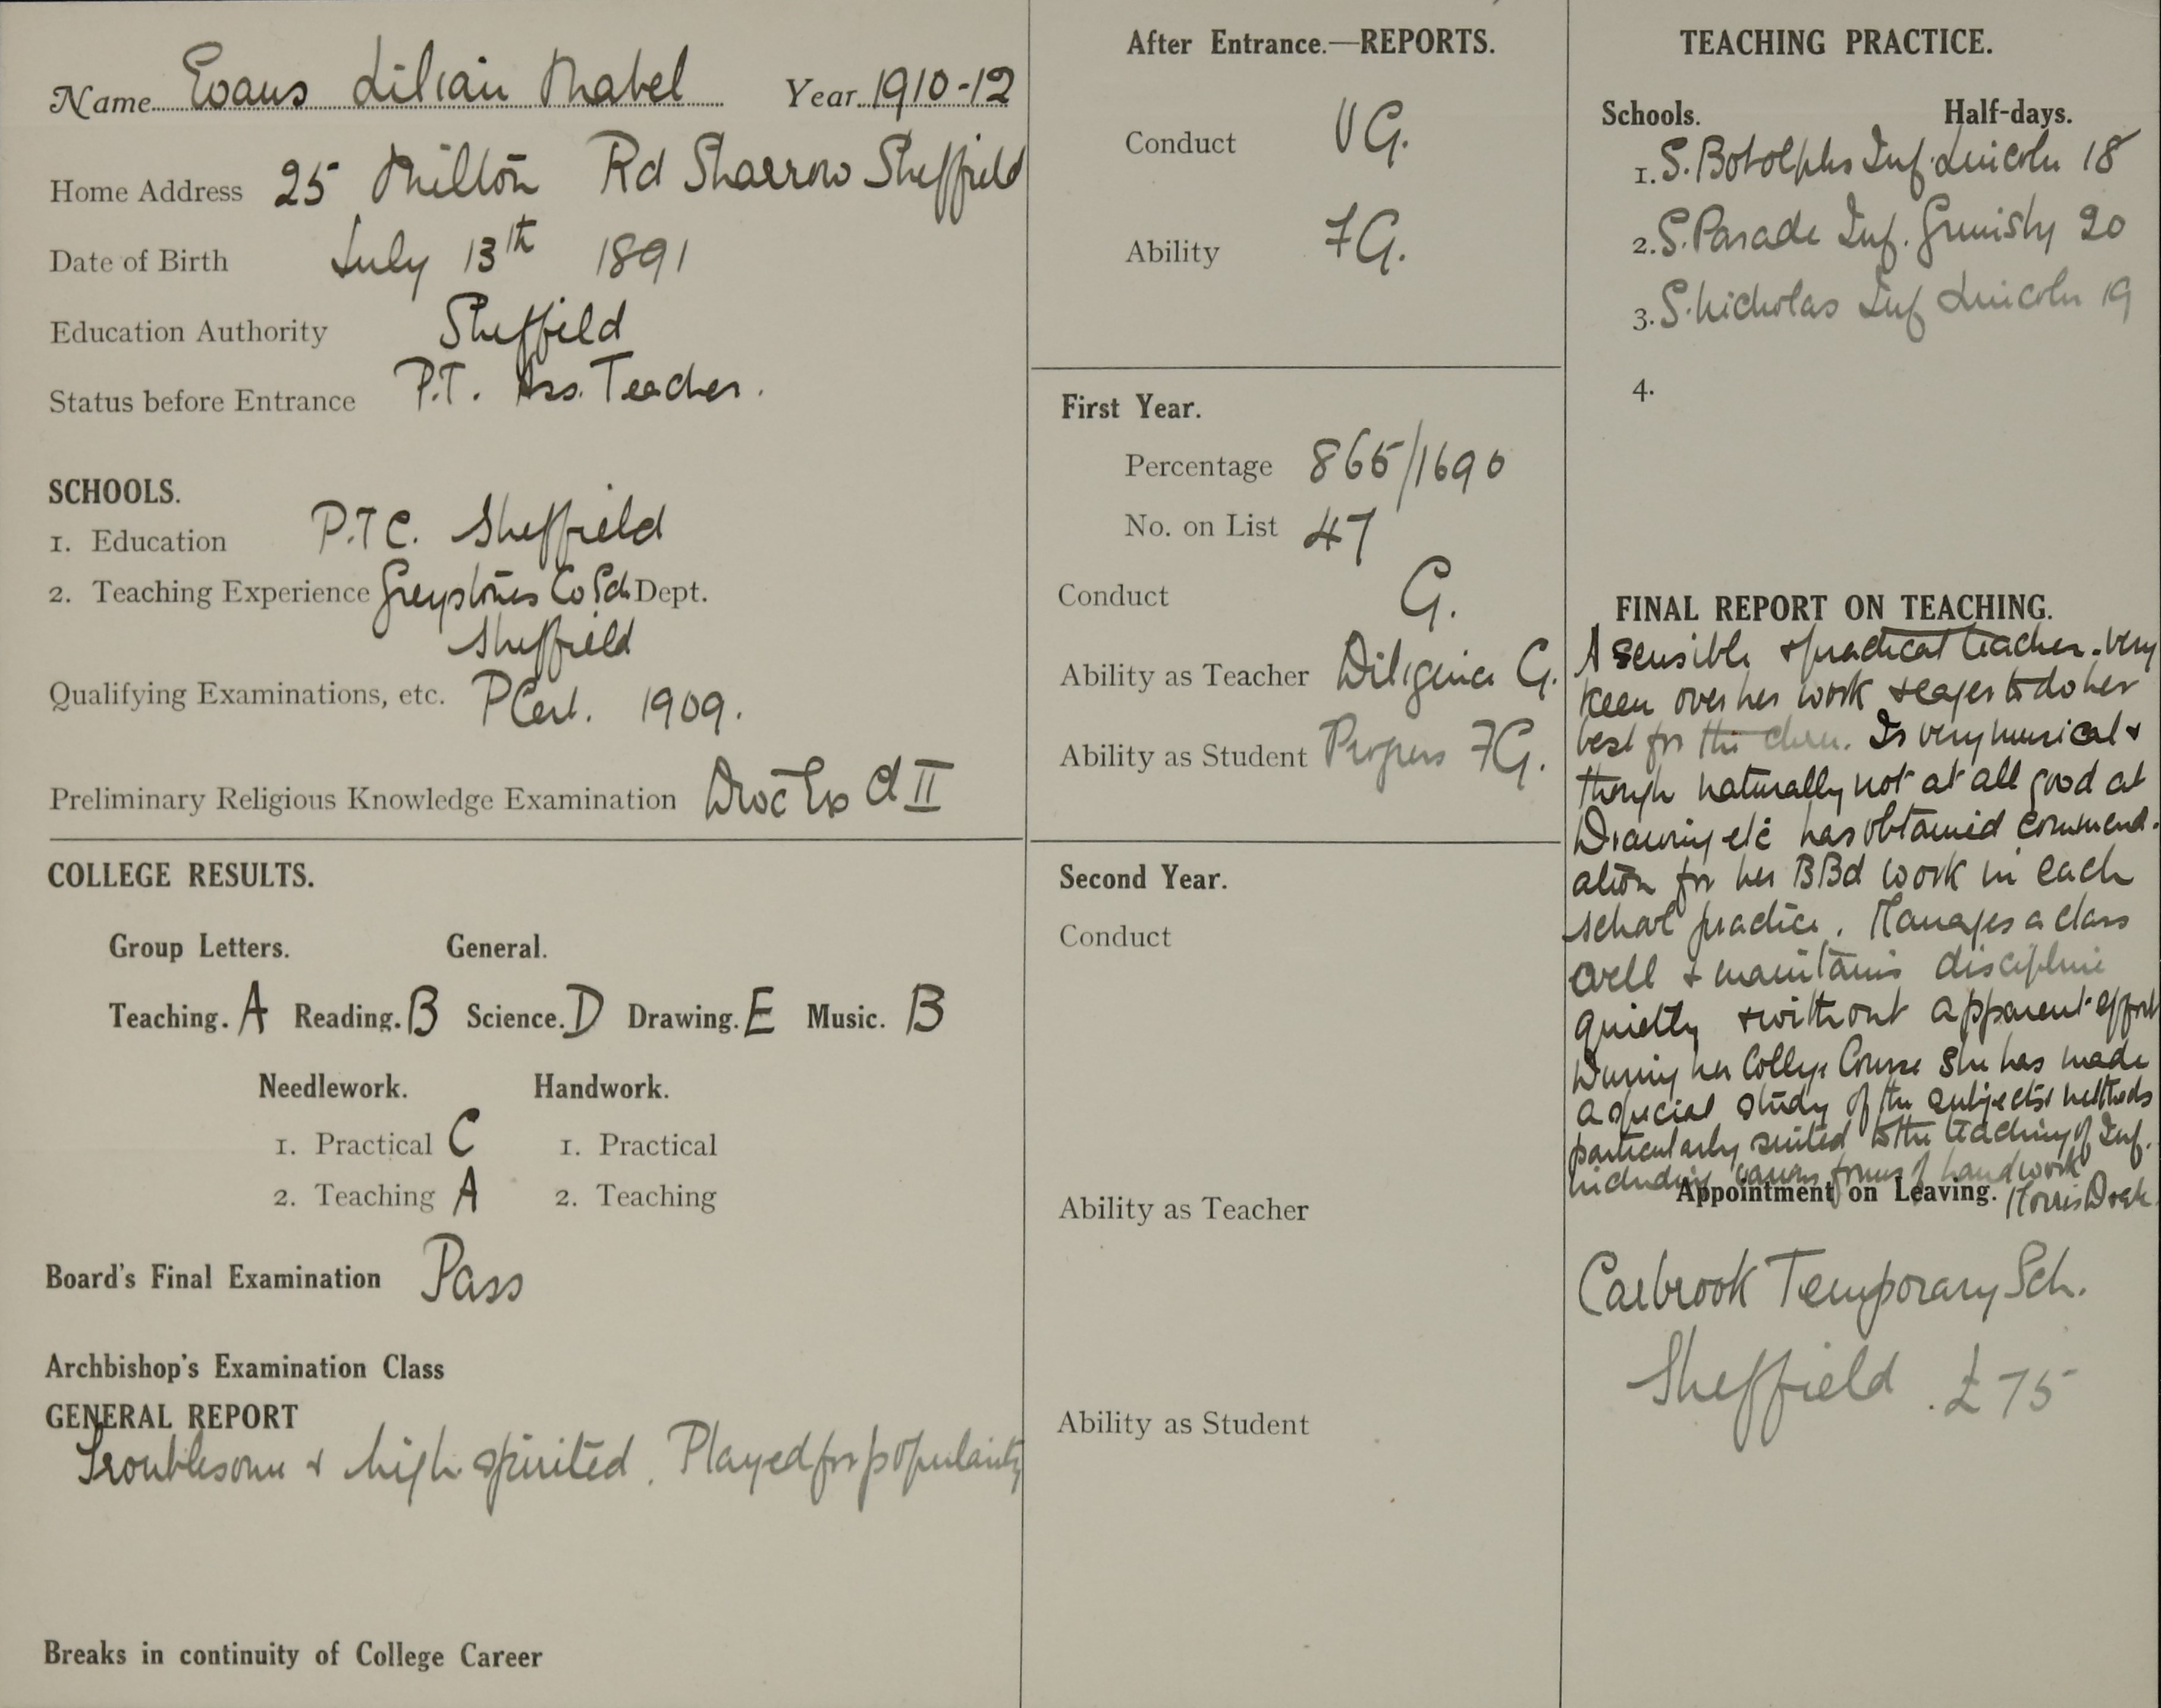 Name Evans Lilian Mabel Year 1910-12
Home Address 25 Milton Rd Sharrow Sheffield
Date of Birth July 13th 1891
Education Authority Sheffield
Status before Entrance P.T. Ass. Teacher.
SCHOOLS.
1. Education P.T.C. Sheffield
2. Teaching Experience Greystones Co Sch. Dept.
Sheffield
Qualifying Examinations, etc. P Cert. 1909.
Preliminary Religious Knowledge Examination Dioc Ex Cl II
COLLEGE RESULTS.
Group Letters. General.
Teaching. A Reading. B Science. D Drawing. E Music. B
Needlework. Handwork.
1. Practical C 1. Practical
2. Teaching A 2. Teaching
Board's Final Examination Pass
Archbishop's Examination Class
GENERAL REPORT
Troublesome & high spirited. Played for popularity
Breaks in continuity of College Career
After Entrance.—REPORTS.
Conduct VG.
Ability FG.
First Year.
Percentage 865/1690
No. on List 47
Conduct G.
Ability as Teacher Diligence G.
Ability as Student Progress FG.
Second Year.
Conduct
Ability as Teacher
Ability as Student
TEACHING PRACTICE.
Schools. Half-days.
1. S. Botolphs Inf. Lincoln 18
2. S. Parade Inf. Grimsby 20
3. S. Nicholas Inf Lincoln 19
4.
FINAL REPORT ON TEACHING.
A sensible & practical teacher. Very
keen over her work & eager to do her
best for the chn. Is very musical &
though naturally not at all good at
Drawing etc has obtained commend-
ation for her BBd work in each
school practice. Manages a class
well & maintains discipline
quietly & without apparent effort
During her College Course she has made
a special study of the subjects & methods
particularly suited to the teaching of Inf.
including various forms of handwork
Appointment on Leaving.
Carbrook Temporary Sch.
Sheffield. £75